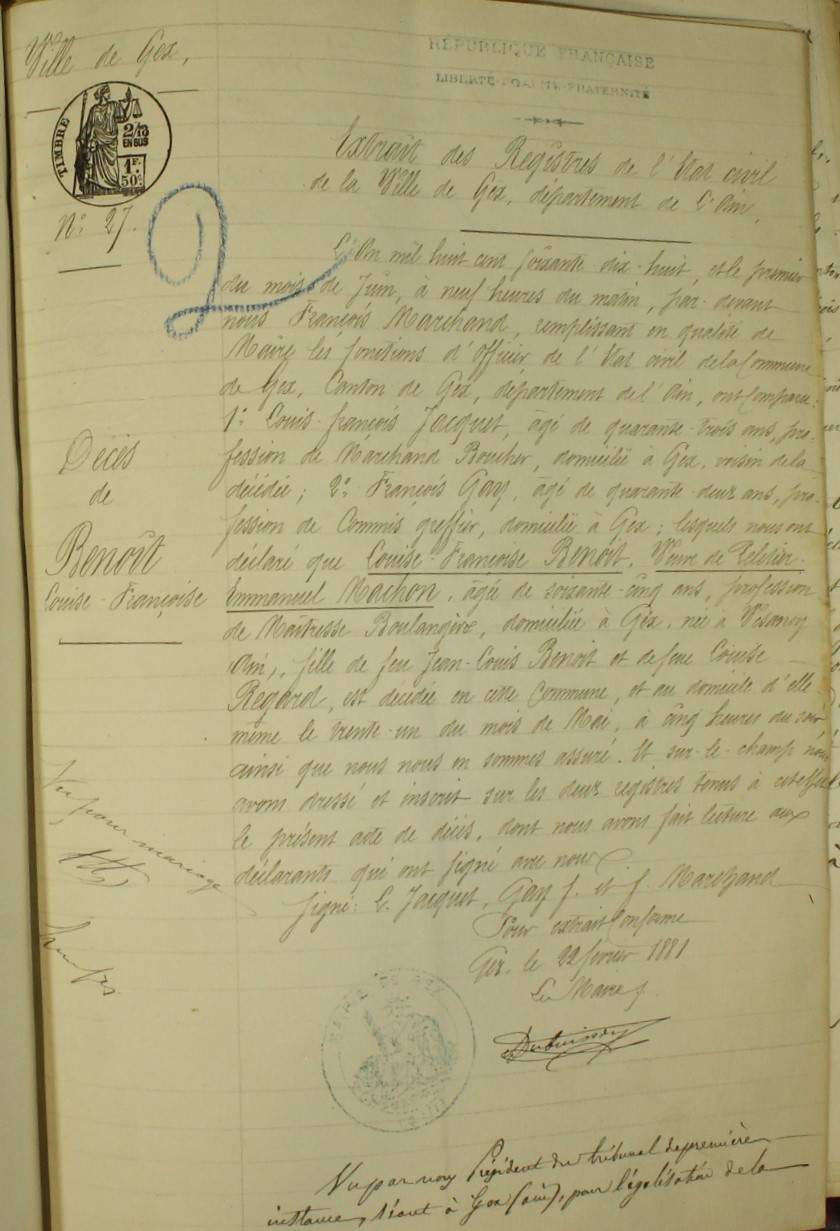 Ville de Gex,
TIMBRE
2/10
EN SUS
1F.
50c.
N° 27.
RÉPUBLIQUE FRANÇAISE
LIBERTÉ-ÉGALITÉ-FRATERNITÉ
Extrait des Registres de l'Etat civil
de la Ville de Gex, département de l'Ain,
2
L'An mil huit cent soixante dix-huit, et le premier
du mois de Juin, à neuf heures du matin, par-devant
nous François Marchand, remplissant en qualité de
Maire les fonctions d'officier de l'Etat civil de la Commune
de Gex, Canton de Gex, département de l'Ain, ont Comparu:
1° Louis-françois Jacquet, âgé de quarante-trois ans, pro-
fession de Marchand Boucher, domicilié à Gex, voisin de la
décédée; 2° François Gay, âgé de quarante deux ans, pro-
fession de Commis greffier, domicilié à Gex; lesquels nous ont
déclaré que Louise-Françoise Benoit, Veuve de
Emmanuel Machon, âgée de soixante-cinq ans, profession
de Maîtresse Boulangère, domiciliée à Gex, née à Vesancy
Ain, fille de feu Jean-Louis Benoit et de feue Louise
Regard, est décédée en cette Commune, et au domicile d'elle
même le trente-un du mois de Mai, à cinq heures du soir
ainsi que nous nous en sommes assuré. Et sur-le-champ nous
avons dressé et inscrit sur les deux registres tenus à cet effet
le présent acte de décès, dont nous avons fait lecture aux
déclarants qui ont signé avec nous
Signé: L. Jacquet, Gay f. et f. Marchand
Pour extrait Conforme
Gex, le 22 février 1881
Le Maire
Décès
de
Benoît
Louise-Françoise
Vu pour mariage
Vu par nous Président du tribunal de première
instance, séant à Gex (ain), pour légalisation de la